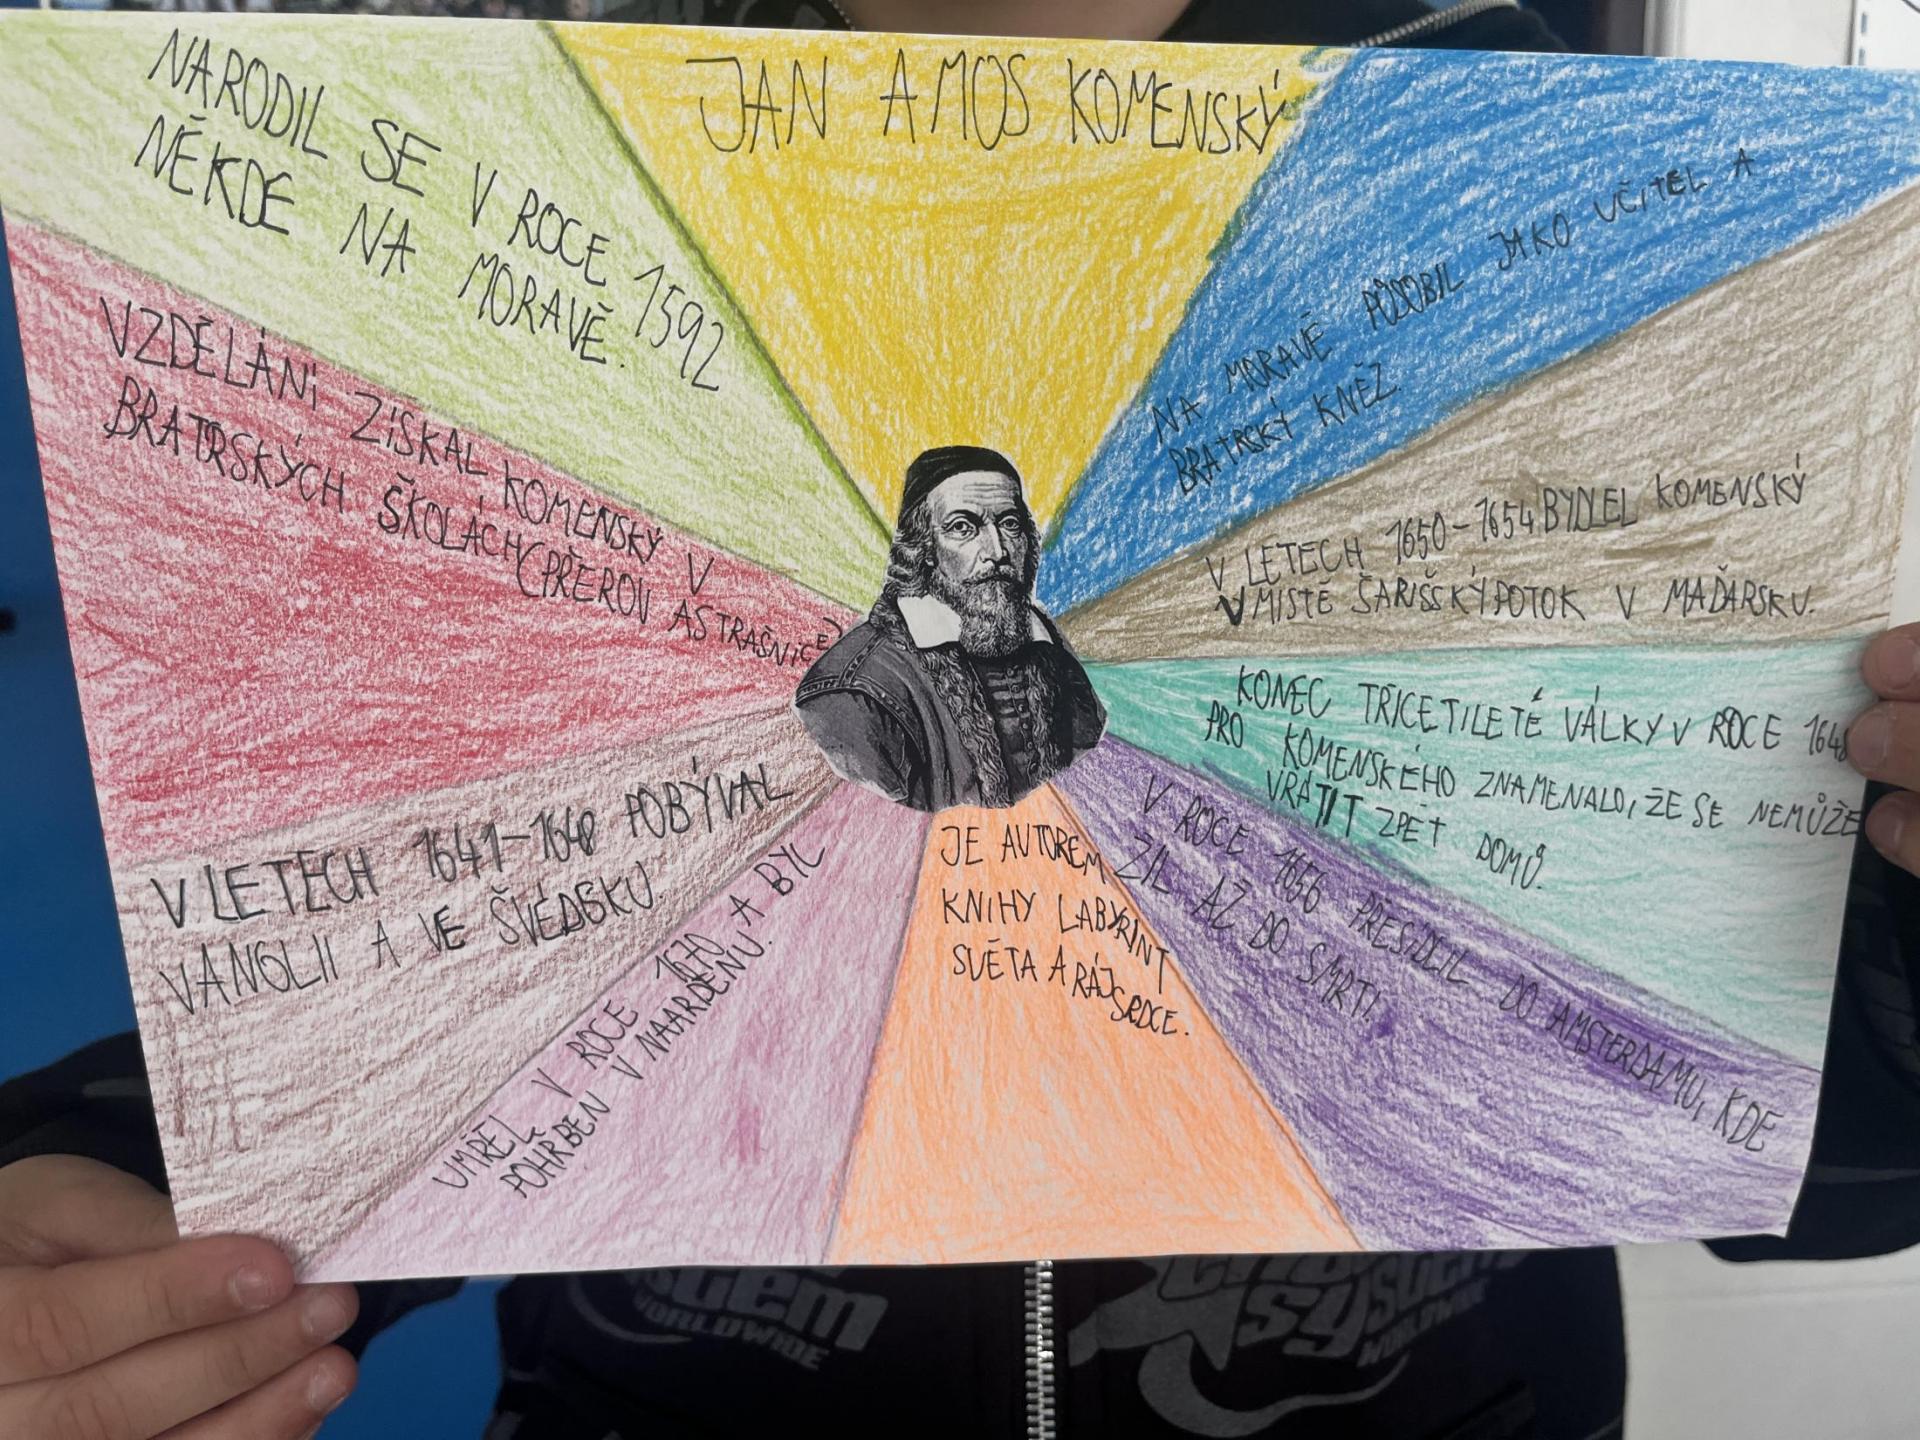 JAN AMOS KOMENSKÝ
NARODIL SE V ROCE 1592
NĚKDE NA MORAVĚ.
VZDĚLÁNÍ ZÍSKAL KOMENSKÝ V
BRATRSKÝCH ŠKOLÁCH (PŘEROV A STRAŠNICE)
V LETECH 1641-1648 POBÝVAL
V ANGLII A VE ŠVÉDSKU.
UMŘEL V ROCE 1670 A BYL
POHŘBEN V NAARDENU.
JE AUTOREM
KNIHY LABYRINT
SVĚTA A RÁJ
SRDCE.
V ROCE 1656 PŘESÍDLIL DO AMSTERDAMU, KDE
ŽIL AŽ DO SMRTI.
KONEC TŘICETILETÉ VÁLKY V ROCE 1648
PRO KOMENSKÉHO ZNAMENALO, ŽE SE NEMŮŽE
VRÁTIT ZPĚT DOMŮ.
V LETECH 1650-1654 BYDLEL KOMENSKÝ
V MÍSTĚ ŠARIŠSKÝ POTOK V MAĎARSKU.
NA MORAVĚ PŮSOBIL JAKO UČITEL A
BRATRSKÝ KNĚZ.
system
WORLDWIDE
system
WORLDWIDE